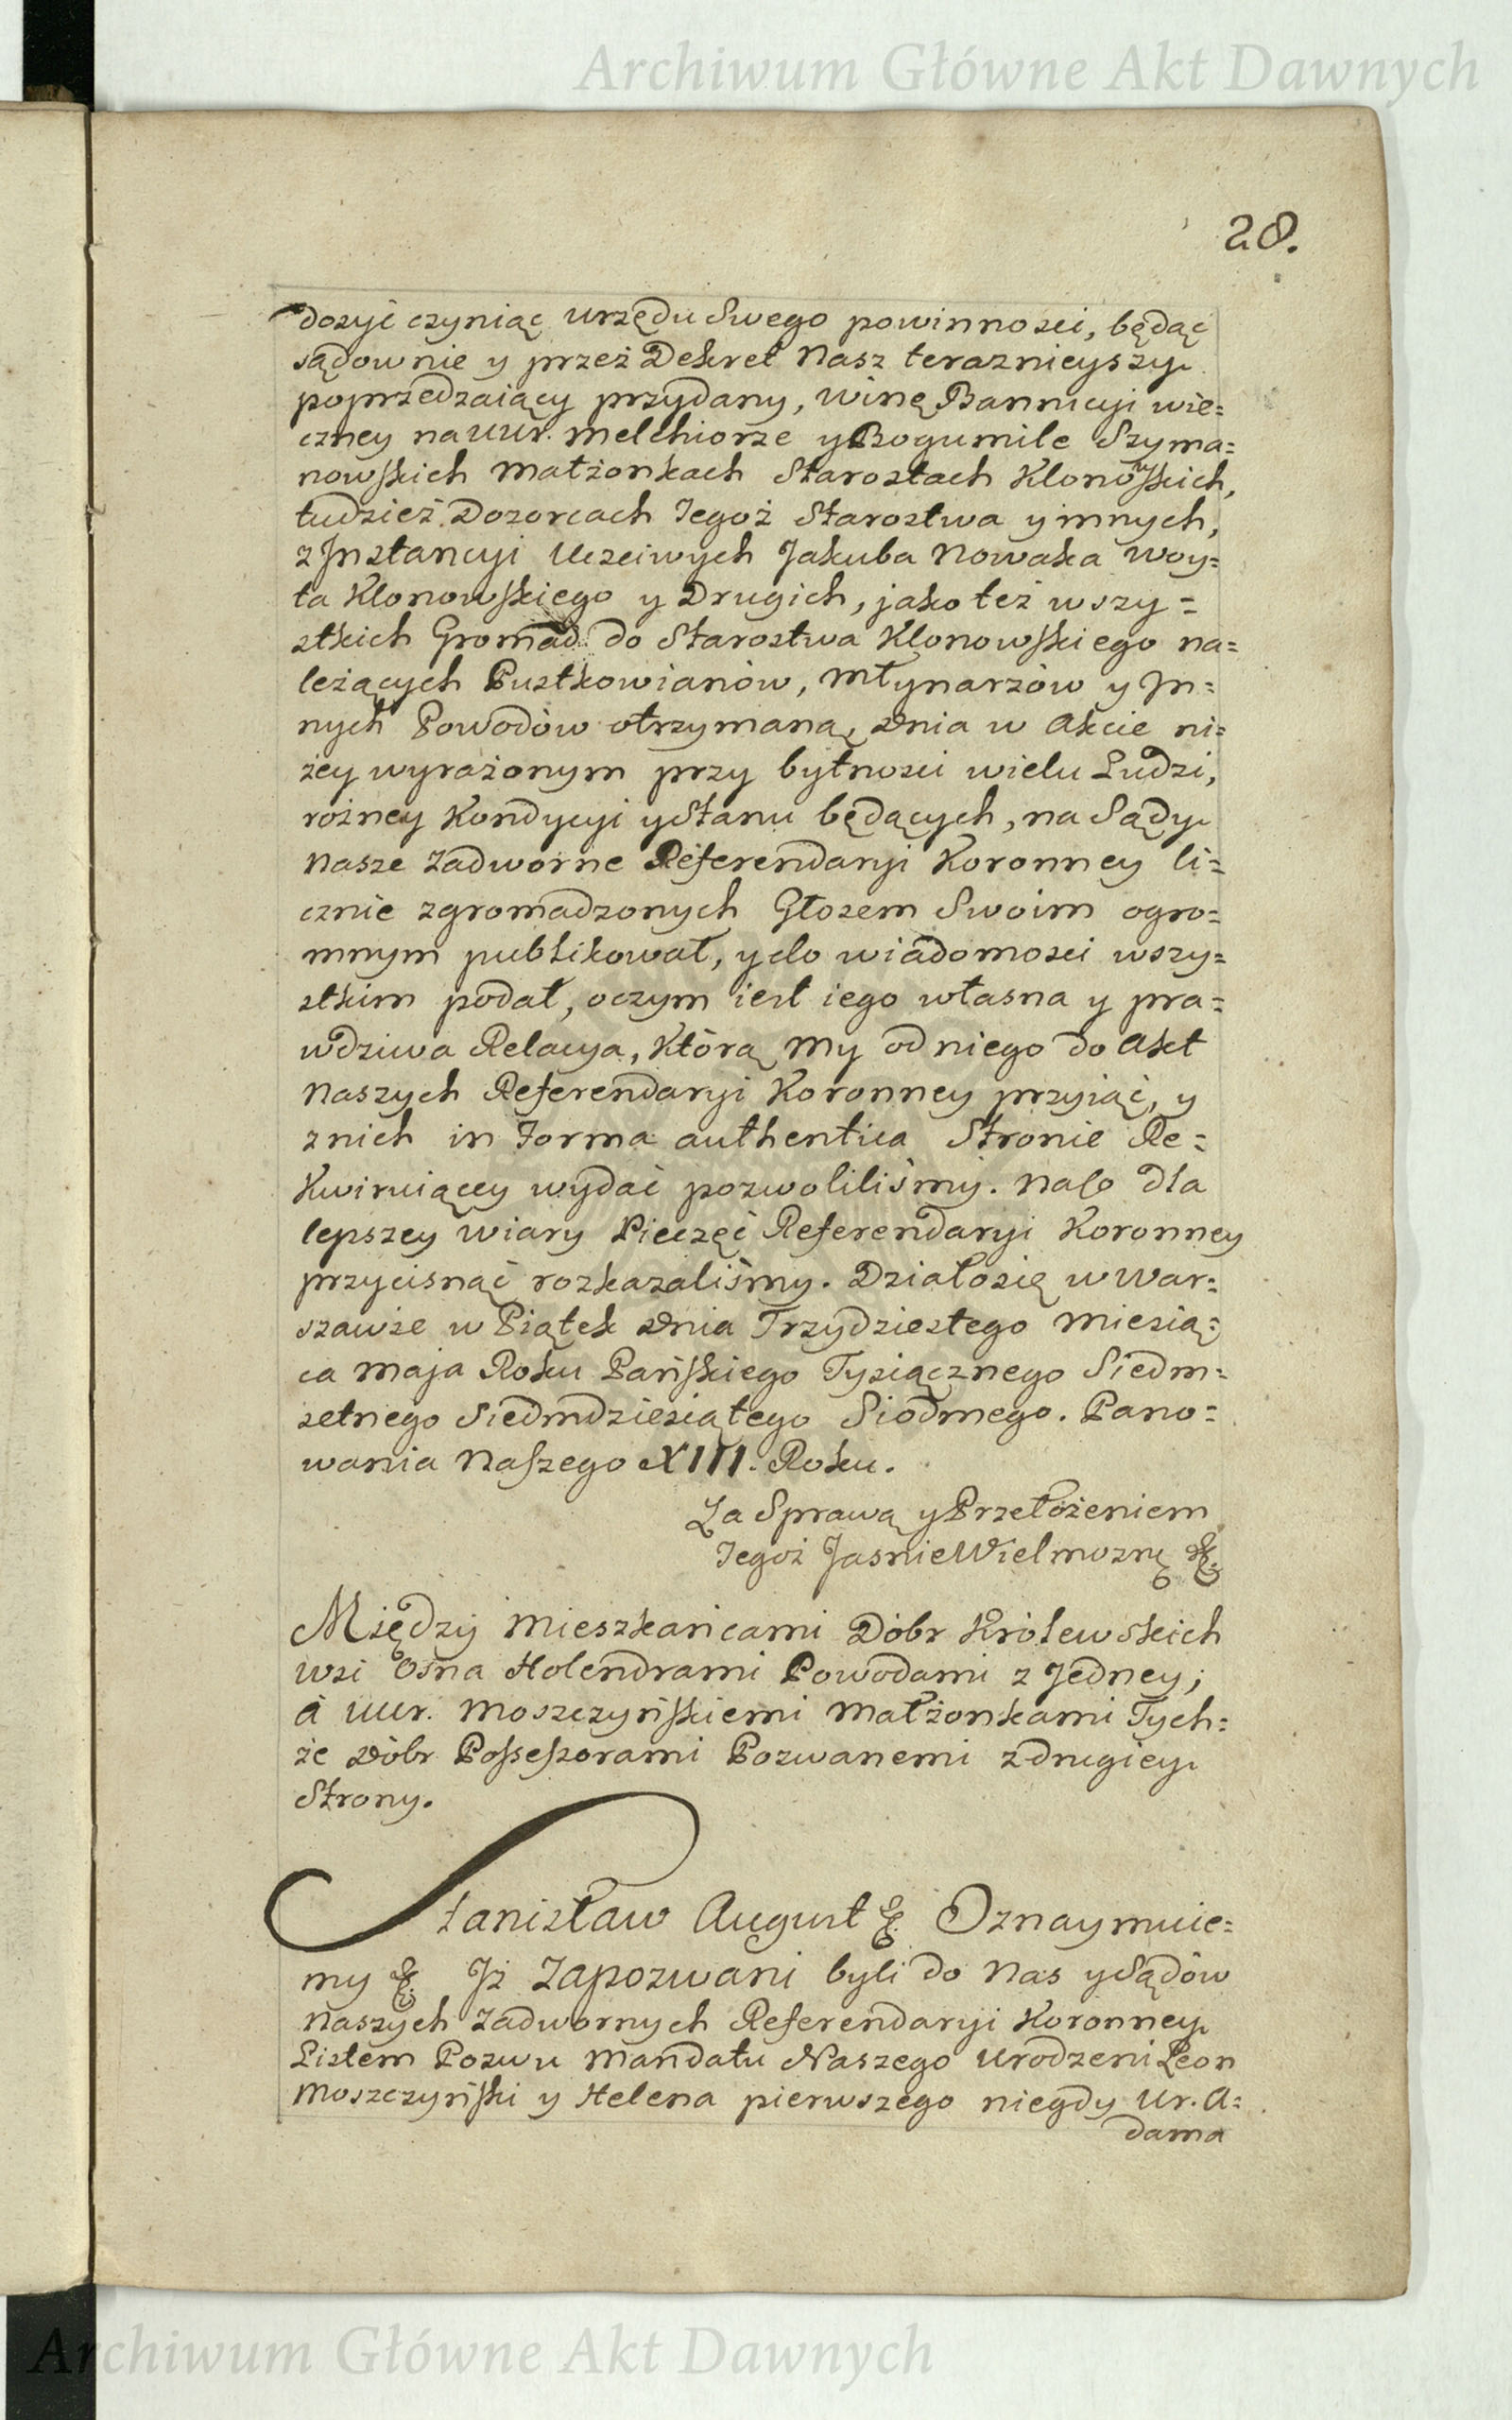 Archiwum Główne Akt Dawnych
28.
dosyć czyniąc urzędu Swego powinnosci, będąc
sądownie y przez Dekret Nasz teraznieyszy
poprzedzaiący przydany, winę Bannicyi wie=
czney na uur. Melchiorze y Bogumile Szyma=
nowskich Małżonkach Starostach Klonowskich,
tudzież Dozorcach Tegoż Starostwa y innych,
z Instancyi Uczciwych Jakuba Nowaka Woy=
ta Klonowskiego y Drugich, jako też wszy=
stkich Gromad do Starostwa Klonowskiego na=
leżących Pustkowianów, Młynarzów y In=
nych Powodów otrzymaną, Dnia w Akcie ni=
żey wyrażonym przy bytnosci wielu Ludzi,
rożney Kondycyi y Stanu będących, na Sądy
Nasze Zadworne Referendaryi Koronney li=
cznie zgromadzonych Głosem Swoim ogro=
mnym publikował, y do wiadomosci wszy=
stkim podał, o czym iest iego własna y pra=
wdziwa Relacya, Którą My od niego do Akt
Naszych Referendaryi Koronney przyiąć, y
z nich in Forma authentica Stronie Re=
kwiruiącey wydać pozwoliliśmy. Na co dla
lepszey wiary Pieczęć Referendaryi Koronney
przycisnąć rozkazaliśmy. Działo się w War=
szawie w Piątek Dnia Trzydziestego Miesią=
ca Maja Roku Pańskiego Tysiącznego Siedm=
setnego Siedmdziesiątego Siodmego. Pano=
wania Naszego XIII. Roku.
Za Sprawą y Przełożeniem
Tegoż Jasnie Wielmożnę &.
Między Mieszkańcami Dóbr Królewskich
wsi Osna Holendrami Powodami z Jedney;
á uur. Moszczyńskiemi Małżonkami Tych=
że Dóbr Possessorami Pozwanemi z drugiey
Strony.
Stanisław August &. Oznaymuie=
my &. Iż Zapozwani byli do Nas y Sądów
Naszych Zadwornych Referendaryi Koronney
Listem Pozwu Mandatu Naszego Urodzeni Leon
Moszczyński y Helena pierwszego niegdy Ur. A=
dama
Archiwum Główne Akt Dawnych